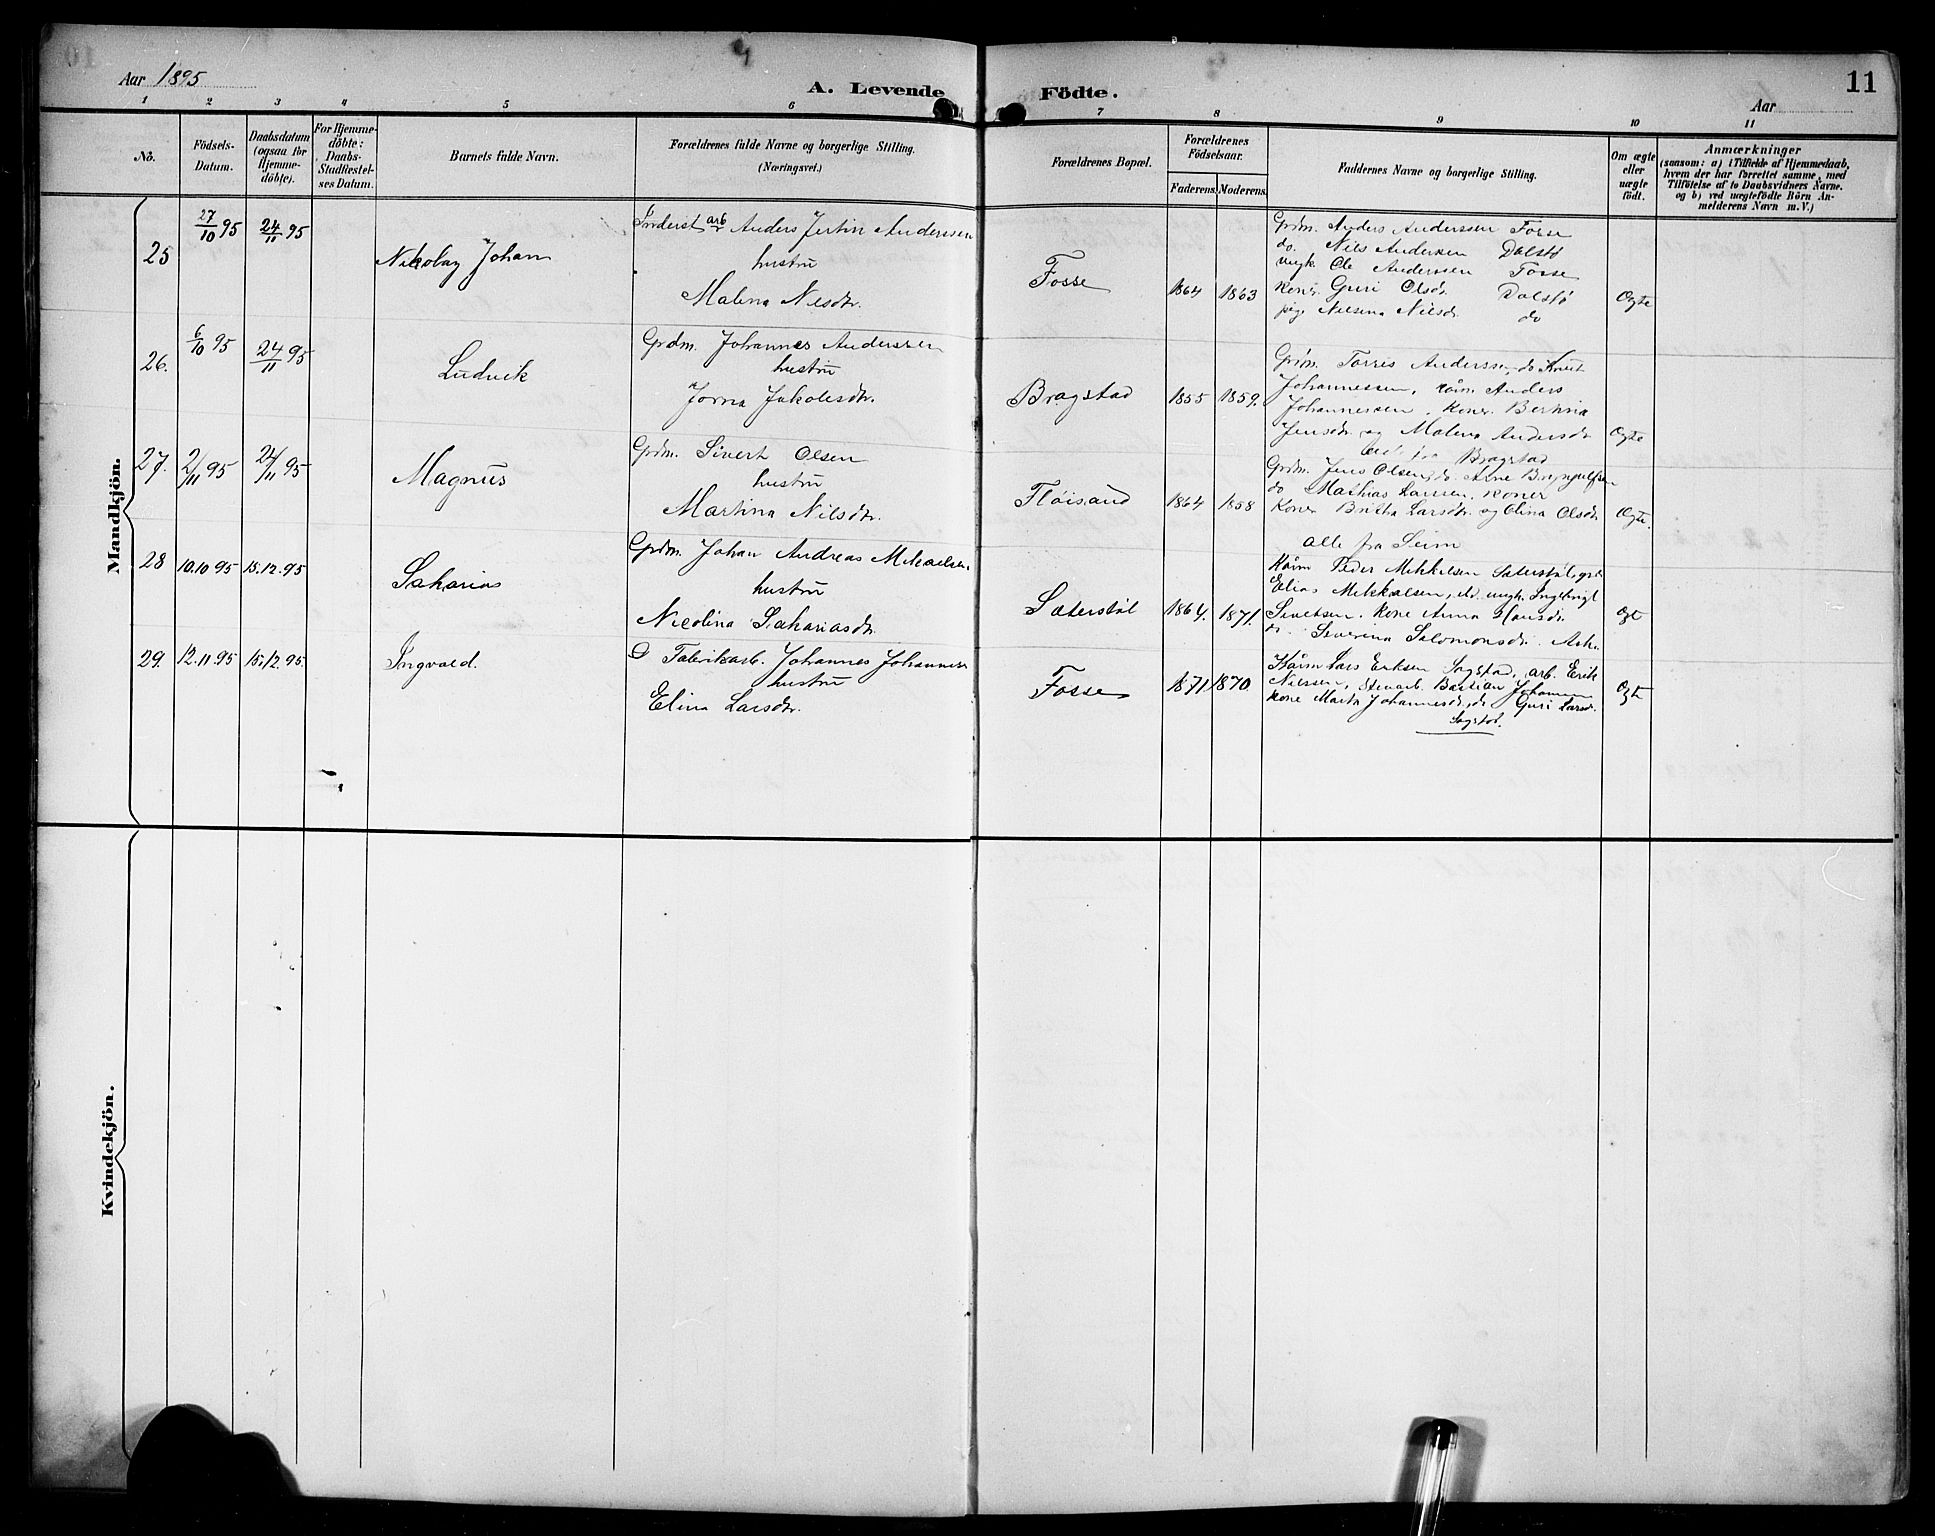 Aar 1895
A. Levende Födte.
Aar
11
1 2 3 4 5 6 7 8 9 10 11
No.
Födsels-Datum.
Daabsdatum (ogsaa for Hjemme-döbte).
For Hjemme-döbte: Daabs-Stadfæstel-ses Datum.
Barnets fulde Navn.
Forældrenes fulde Navne og borgerlige Stilling.
(Næringsvei.)
Forældrenes Bopæl.
Forældrenes Födselsaar.
Faderens. Moderens.
Faddernes Navne og borgerlige Stilling.
Om ægte eller uægte födt.
Anmærkninger
(saasom: a) i Tilfælde af Hjemmedaab,
hvem der har forrettet samme, med
Tilföielse af to Daabsvidners Navne.
og b) ved uægtefödte Börn An-
melderens Navn m. V.)
Mandkjön.
25 27/10 95 24/11 95 Nikolay Johan
Inderst arb Anders Jertin Anderssen
hustru
Malena Nilsdtr.
Fosse 1864 1863
Grdm. Anders Anderssen Fosse
do. Nils Andersen Dalstø
ungk. Ole Anderssen Fosse
kone Guri Olsdr. Dalstø
pige Nilsina Nilsd. do
Ægte
26. 6/10 95 24/11 95 Ludvik
Grdm. Johannes Anderssen
hustru
Jorna Jakobsdtr.
Bragstad 1855 1859.
Grdm. Torris Anderssen, do Knut
Johannessen, Anders
Johannessen, koner Bertina
Jensdr og Malena Andersdr
fra Bragstad
Ægte
27. 2/11 95 24/11 95 Magnus
Grdm. Sivert Olsen
hustru
Martina Nilsdtr.
Fløisand 1864 1858
Grdm. Jens Olsen, do. Arne
do Mathias Larssen, koner
Koner Britha Larsdtr. og Olina Olsdr
alle fra Seim
Ægte.
28 10.10 95 15.12.95 Sakarias
Grdm. Johan Andreas Mikaelsen
hustru
Nicolina Sakariasdr.
Sæterstøl 1864. 1871.
Kårm Peder Mikkelsen Sæterstøl, gr
Elias Mikkalsen, do. ungk. Ingebrigt
Sivertsen. kone Anna Hansdr.
do. Severina Salomonsdr.
Ægt
29. 12.11.95 15.12.95 Ingvald.
Fabrikarb. Johannes Johannes
hustru
Elina Larsdtr.
Fosse 1871 1870
Kårm Lars Eriksen Sagstad, arb. Erik
Nilssen, Stenarb. Bastian Johannes
kone Marta Johannesdr, do Guri Larsd.
Sagstad.
Ægt
Kvindekjön.